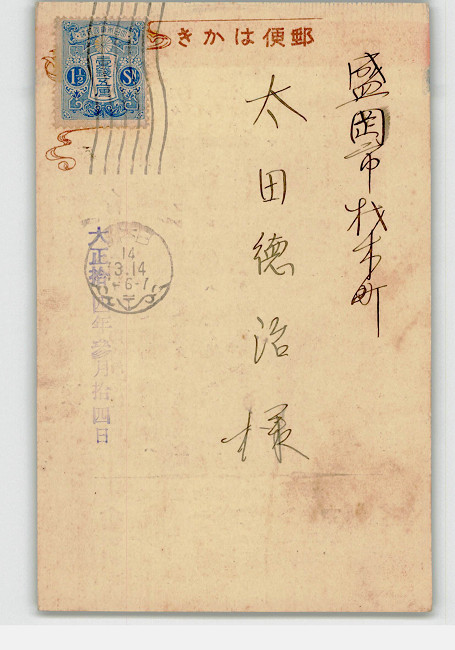 郵便はかき
盛岡市材木町
太田徳治様
1½ Sn
壹銭五厘
14
3.14
大正拾四年参月拾四日